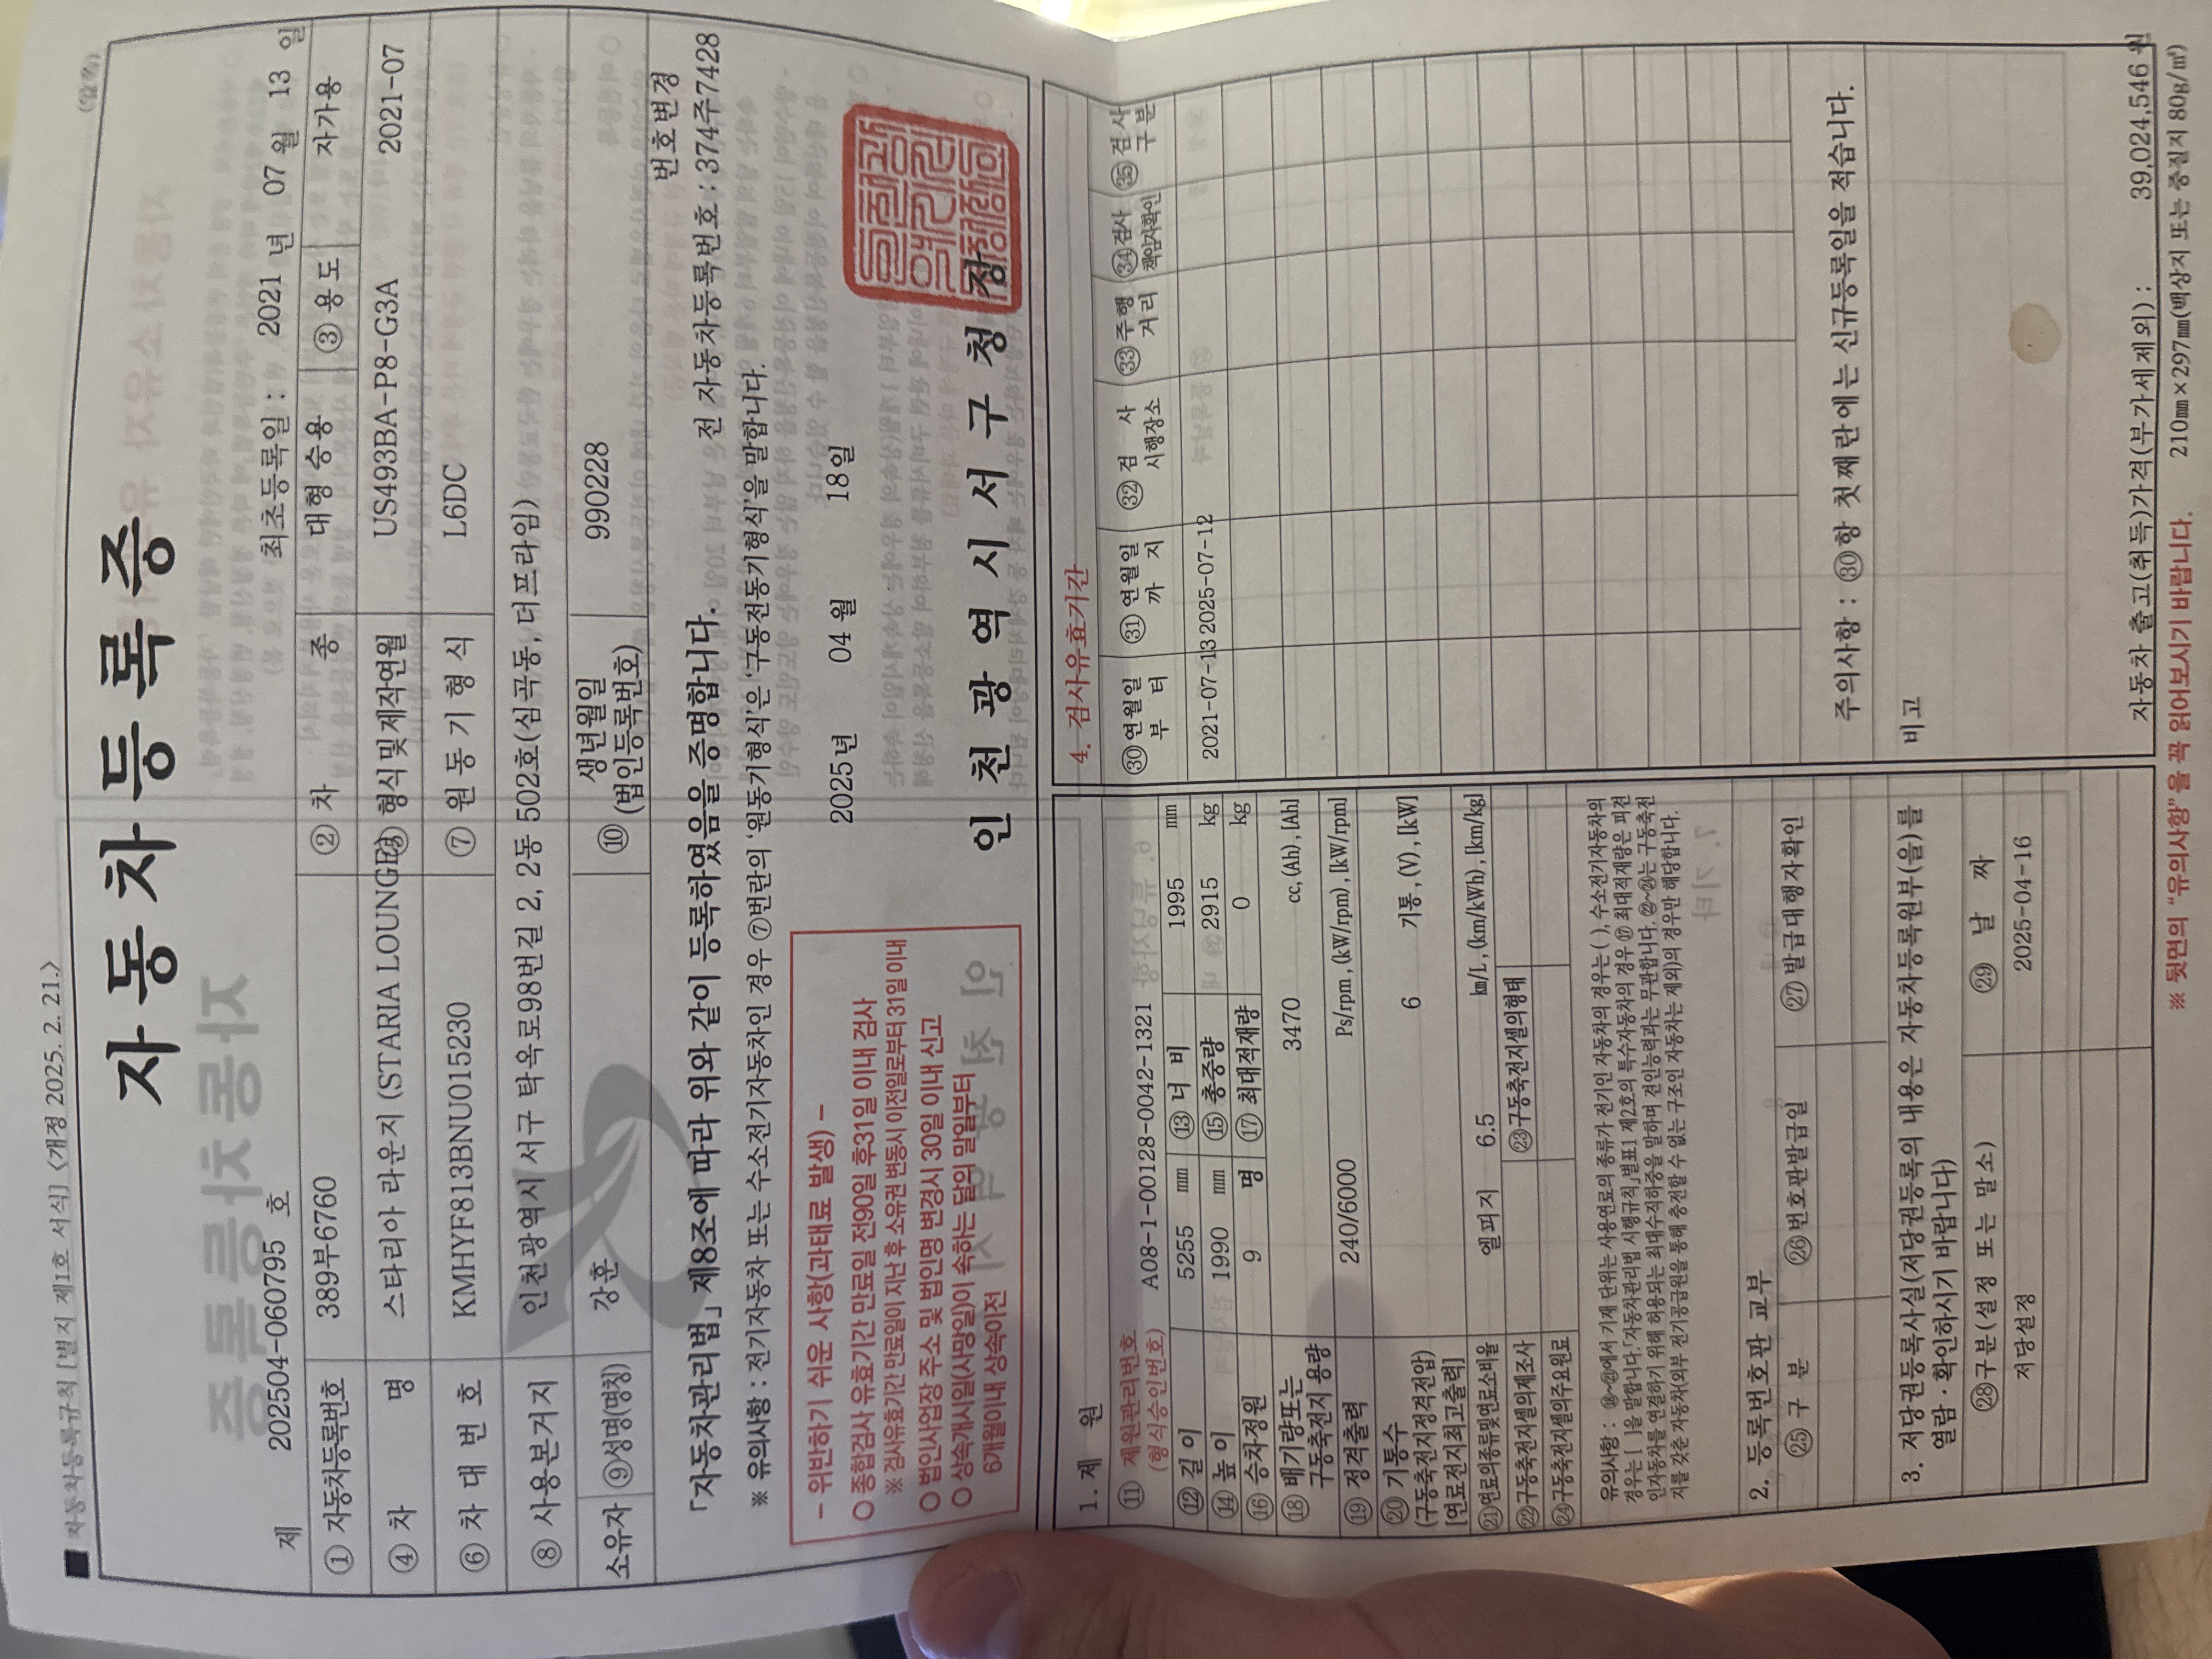 ■ 자동차등록규칙 [별지 제1호 서식] <개정 2025. 2. 21.>
(앞쪽)
자동차등록증
제 202504-060795 호 최초등록일 : 2021 년 07 월 13 일
① 자동차등록번호 389부6760 ② 차 종 대형 승용 ③ 용도 자가용
④ 차 명 스타리아 라운지 (STARIA LOUNGE) 형식 및 제작연월 US493BA-P8-G3A 2021-07
⑥ 차 대 번 호 KMHYF813BNU015230 ⑦ 원 동 기 형 식 L6DC
⑧ 사용본거지 인천광역시 서구 탁옥로98번길 2, 2동 502호(심곡동, 더프라임)
소유자 ⑨성명(명칭) 강훈 ⑩ 생년월일 (법인등록번호) 990228
「자동차관리법」 제8조에 따라 위와 같이 등록하였음을 증명합니다.
번호변경
전 자동차등록번호 : 374주7428
※ 유의사항 : 전기자동차 또는 수소전기자동차인 경우 ⑦번란의 '원동기형식'은 '구동전동기형식'을 말합니다.
- 위반하기 쉬운 사항(과태료 발생) -
○ 종합검사 유효기간 만료일 전90일 후31일 이내 검사
※ 검사유효기간 만료일이 지난 후 소유권 변동시 이전일로부터 31일 이내
○ 법인사업장 주소 및 법인명 변경시 30일 이내 신고
○ 상속개시일(사망일)이 속하는 달의 말일부터
6개월이내 상속이전
2025년 04 월 18일
인 천 광 역 시 서 구 청 장
1. 제 원
⑪ 제원관리번호
(형식승인번호) A08-1-00128-0042-1321
⑫ 길 이 5255 mm ⑬ 너 비 1995 mm
⑭ 높 이 1990 mm ⑮ 총중량 2915 kg
⑯ 승차정원 9 명 ⑰ 최대적재량 0 kg
⑱ 배기량또는
구동축전지 용량 3470 cc, (Ah), [Ah]
⑲ 정격출력 240/6000 Ps/rpm, (kW/rpm), [kW/rpm]
⑳ 기통수
(구동축전지정격전압)
[연료전지최고출력] 6 기통, (V), [kW]
㉑연료의종류및연료소비율 엘피지 6.5 km/L, (km/kWh), [km/kg]
㉒구동축전지셀의제조사 ㉓구동축전지셀의형태
㉔구동축전지셀의주요원료
유의사항 : ⑱~㉑에서 기재 단위는 사용연료의 종류가 전기인 자동차의 경우는 ( ), 수소전기자동차의
경우는 [ ]을 말합니다.「자동차관리법 시행규칙」별표1 제2호의 특수자동차의 경우 ⑰ 최대적재량은 피견
인자동차를 연결하기 위해 허용되는 최대수직하중을 말하며 견인능력과는 무관합니다. ㉒~㉔는 구동축전
지를 갖춘 자동차(외부 전기공급원을 통해 충전할 수 없는 구조인 자동차는 제외)의 경우만 해당합니다.
2. 등록번호판 교부
㉕ 구 분 ㉖번호판발급일 ㉗발급대행자확인
3. 저당권등록사실(저당권등록의 내용은 자동차등록원부(을)를
열람 · 확인하시기 바랍니다)
㉘구분(설정 또는 말소) ㉙ 날 짜
저당설정 2025-04-16
4. 검사유효기간
㉚연월일 부 터 ㉛ 연월일 까 지 ㉜ 검 사 시행장소 ㉝주행 거리 ㉞검사 책임자확인 ㉟검사 구분
2021-07-13 2025-07-12
주의사항 : ㉚항 첫째란에는 신규등록일을 적습니다.
비고
자동차 출고(취득)가격(부가세제외) : 39,024,546 원
※ 뒷면의 "유의사항"을 꼭 읽어보시기 바랍니다. 210㎜×297㎜(백상지 또는 중질지 80g/㎡)